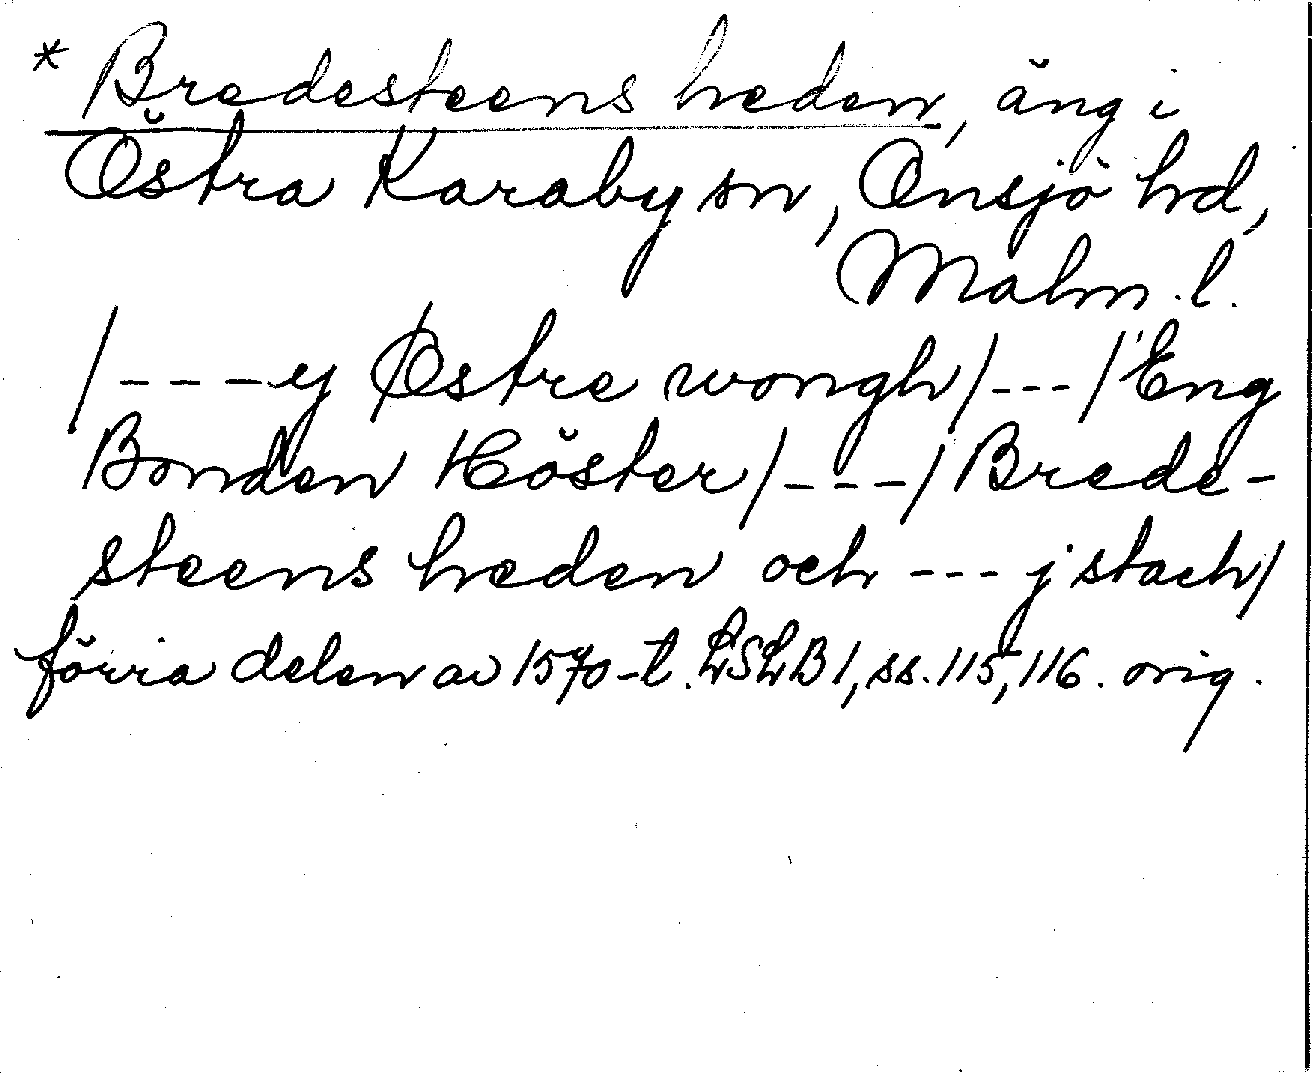 * Bredesteens heden, äng i
Östra Karaby sn, Onsjö hd,
Malm. l.
/---y Østre wongh/---/Eng
Bonden Höster/---/Brede-
steens heden och ---j stach/
förra delen av 1570-t. LSLB 1, ss. 115, 116. orig.